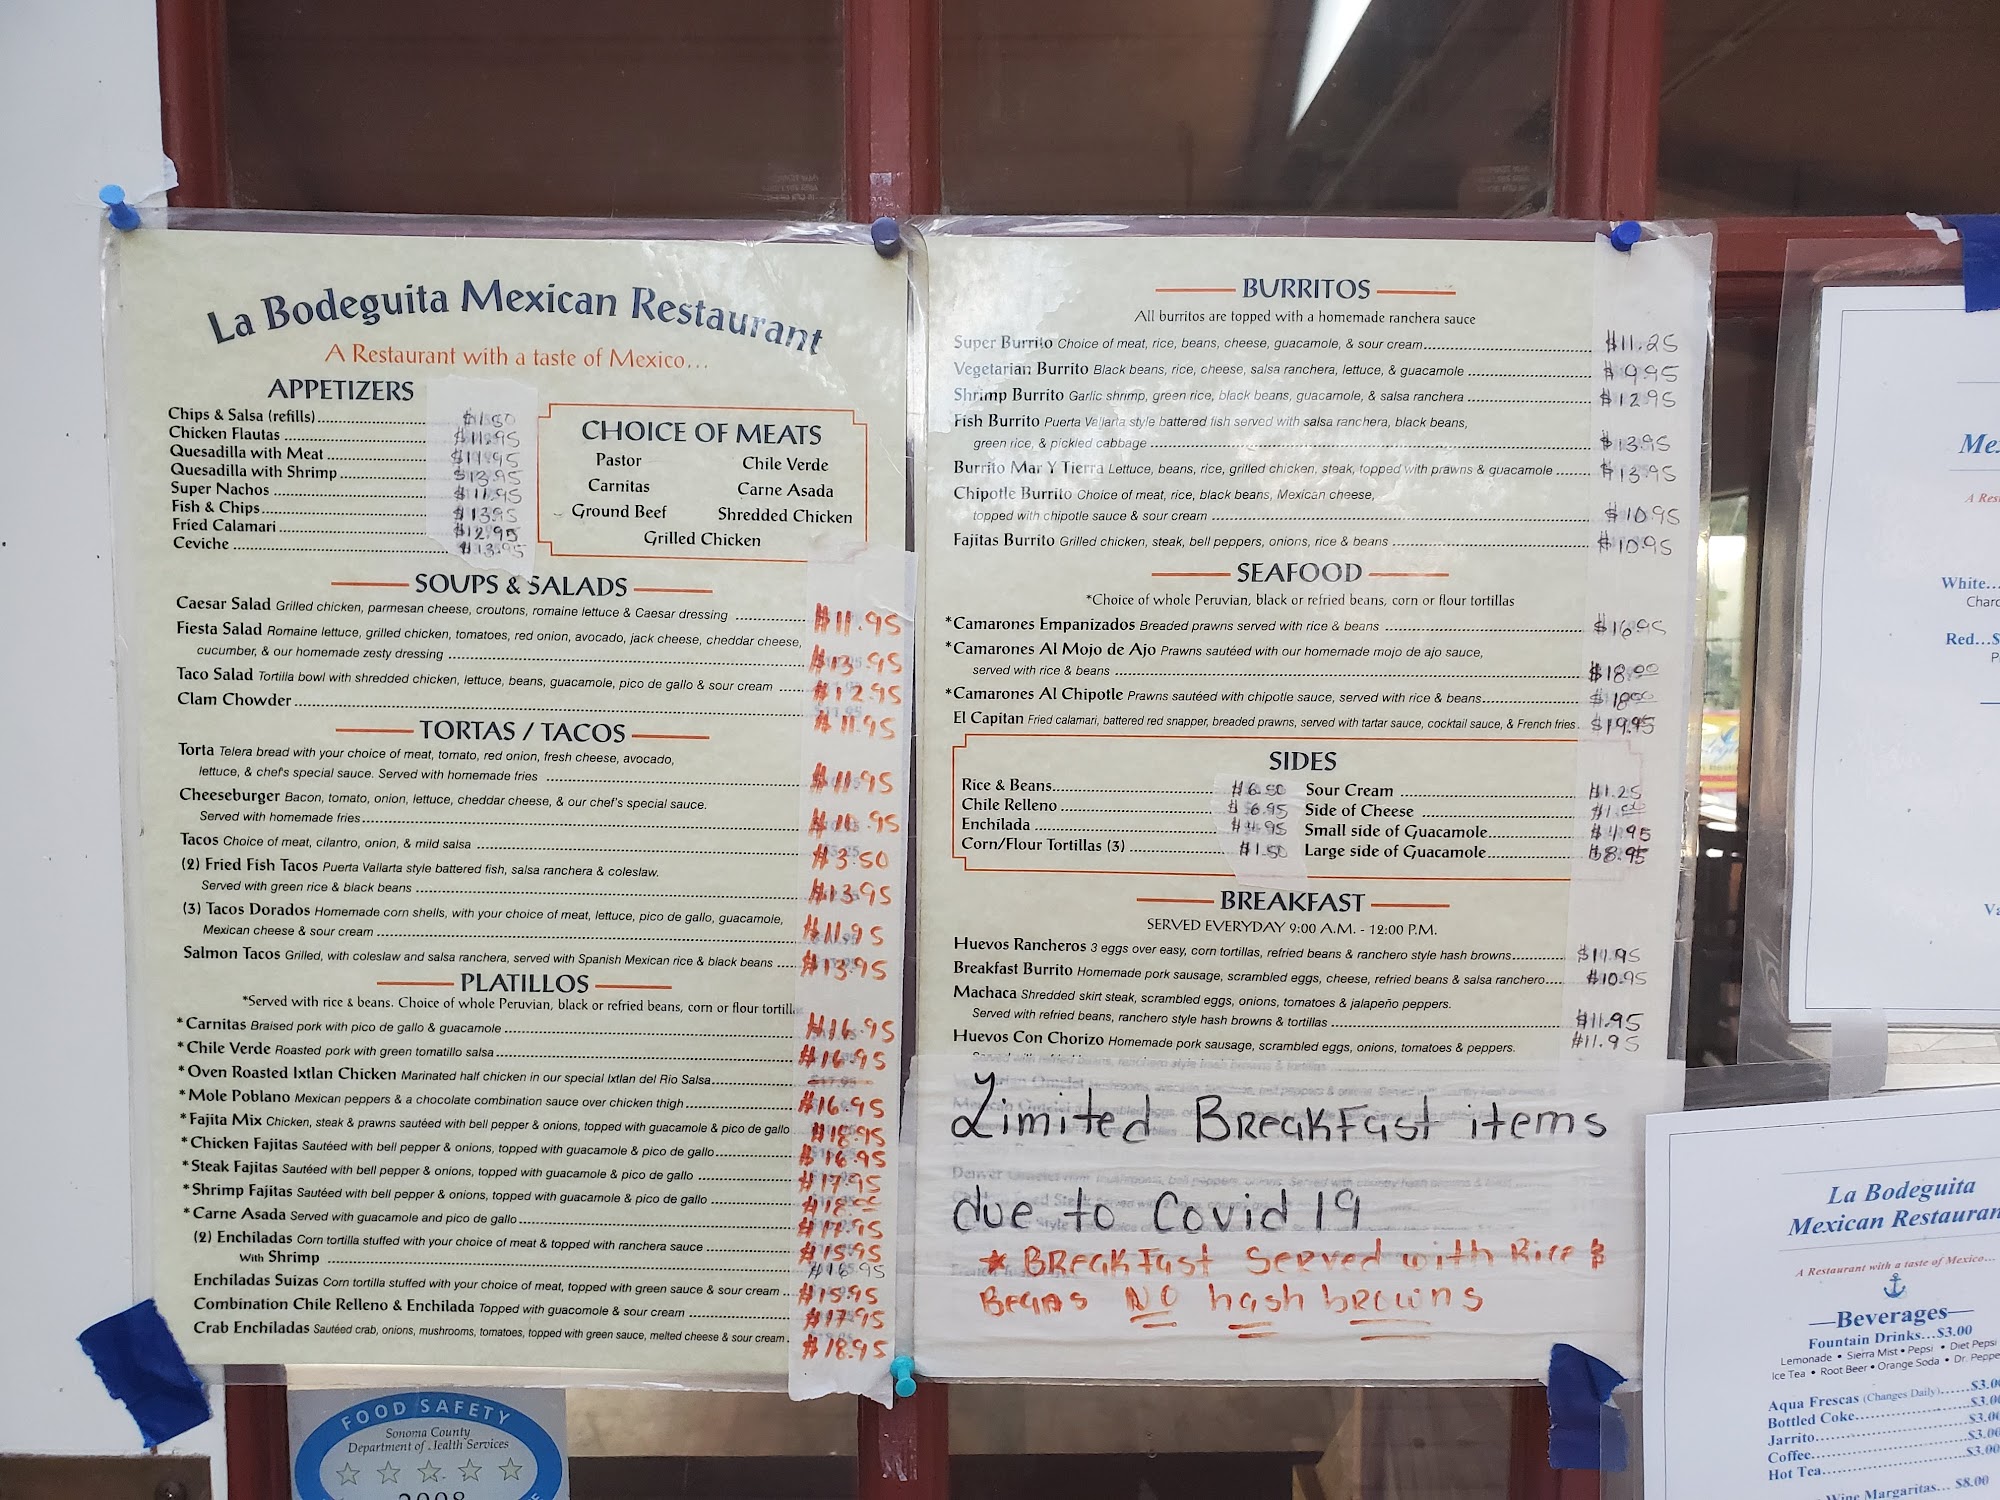 La Bodeguita Mexican Restaurant
A Restaurant with a taste of Mexico...
APPETIZERS
Chips & Salsa (refills) $1.50
Chicken Flautas $11.95
Quesadilla with Meat $11.95
Quesadilla with Shrimp $13.95
Super Nachos $11.95
Fish & Chips $13.95
Fried Calamari $12.95
Ceviche $13.95
CHOICE OF MEATS
Pastor Chile Verde
Carnitas Carne Asada
Ground Beef Shredded Chicken
Grilled Chicken
SOUPS & SALADS
Caesar Salad Grilled chicken, parmesan cheese, croutons, romaine lettuce & Caesar dressing $11.95
Fiesta Salad Romaine lettuce, grilled chicken, tomatoes, red onion, avocado, jack cheese, cheddar cheese,
cucumber, & our homemade zesty dressing $13.95
Taco Salad Tortilla bowl with shredded chicken, lettuce, beans, guacamole, pico de gallo & sour cream $12.95
Clam Chowder $11.95
TORTAS / TACOS
Torta Telera bread with your choice of meat, tomato, red onion, fresh cheese, avocado,
lettuce, & chef's special sauce. Served with homemade fries $11.95
Cheeseburger Bacon, tomato, onion, lettuce, cheddar cheese, & our chef's special sauce.
Served with homemade fries $10.95
Tacos Choice of meat, cilantro, onion, & mild salsa $3.50
(2) Fried Fish Tacos Puerta Vallarta style battered fish, salsa ranchera & coleslaw.
Served with green rice & black beans $13.95
(3) Tacos Dorados Homemade corn shells, with your choice of meat, lettuce, pico de gallo, guacamole,
Mexican cheese & sour cream $11.95
Salmon Tacos Grilled, with coleslaw and salsa ranchera, served with Spanish Mexican rice & black beans $13.95
PLATILLOS
*Served with rice & beans. Choice of whole Peruvian, black or refried beans, corn or flour
*Carnitas Braised pork with pico de gallo & guacamole $16.95
*Chile Verde Roasted pork with green tomatillo salsa $16.95
*Oven Roasted Ixtlan Chicken Marinated half chicken in our special Ixtlan del Rio Salsa
*Mole Poblano Mexican peppers & a chocolate combination sauce over chicken thigh $16.95
*Fajita Mix Chicken, steak & prawns sautéed with bell pepper & onions, topped with guacamole & pico de gallo $18.95
*Chicken Fajitas Sautéed with bell pepper & onions, topped with guacamole & pico de gallo $16.95
*Steak Fajitas Sautéed with bell pepper & onions, topped with guacamole & pico de gallo $17.95
*Shrimp Fajitas Sautéed with bell pepper & onions, topped with guacamole & pico de gallo
*Carne Asada Served with guacamole and pico de gallo $17.95
(2) Enchiladas Corn tortilla stuffed with your choice of meat & topped with ranchera sauce $15.95
With Shrimp $16.95
Enchiladas Suizas Corn tortilla stuffed with your choice of meat, topped with green sauce & sour cream $15.95
Combination Chile Relleno & Enchilada Topped with guacomole & sour cream $17.95
Crab Enchiladas Sautéed crab, onions, mushrooms, tomatoes, topped with green sauce, melted cheese & sour cream $18.95
BURRITOS
All burritos are topped with a homemade ranchera sauce
Super Burrito Choice of meat, rice, beans, cheese, guacamole, & sour cream $11.25
Vegetarian Burrito Black beans, rice, cheese, salsa ranchera, lettuce, & guacamole $9.95
Shrimp Burrito Garlic shrimp, green rice, black beans, guacamole, & salsa ranchera $12.95
Fish Burrito Puerta Vallarta style battered fish served with salsa ranchera, black beans,
green rice, & pickled cabbage $13.95
Burrito Mar Y Tierra Lettuce, beans, rice, grilled chicken, steak, topped with prawns & guacamole $13.95
Chipotle Burrito Choice of meat, rice, black beans, Mexican cheese,
topped with chipotle sauce & sour cream $10.95
Fajitas Burrito Grilled chicken, steak, bell peppers, onions, rice & beans $10.95
SEAFOOD
*Choice of whole Peruvian, black or refried beans, corn or flour tortillas
*Camarones Empanizados Breaded prawns served with rice & beans $16.95
*Camarones Al Mojo de Ajo Prawns sautéed with our homemade mojo de ajo sauce,
served with rice & beans $18.00
*Camarones Al Chipotle Prawns sautéed with chipotle sauce, served with rice & beans $18.00
El Capitan Fried calamari, battered red snapper, breaded prawns, served with tartar sauce, cocktail sauce, & French fries $19.95
SIDES
Rice & Beans $6.50 Sour Cream $1.25
Chile Relleno $6.95 Side of Cheese
Enchilada $4.95 Small side of Guacamole $4.95
Corn/Flour Tortillas (3) $1.50 Large side of Guacamole $8.95
BREAKFAST
SERVED EVERYDAY 9:00 A.M. - 12:00 P.M.
Huevos Rancheros 3 eggs over easy, corn tortillas, refried beans & ranchero style hash browns $11.95
Breakfast Burrito Homemade pork sausage, scrambled eggs, cheese, refried beans & salsa ranchero $10.95
Machaca Shredded skirt steak, scrambled eggs, onions, tomatoes & jalapeño peppers.
Served with refried beans, ranchero style hash browns & tortillas $11.95
Huevos Con Chorizo Homemade pork sausage, scrambled eggs, onions, tomatoes & peppers. $11.95
Limited Breakfast items
due to Covid 19
* Breakfast Served with Rice &
Beans NO hash browns
White...
Red...
La Bodeguita
Mexican Restauran
A Restaurant with a taste of Mexico...
Beverages
Fountain Drinks...$3.00
Lemonade • Sierra Mist • Pepsi • Diet Pepsi
Ice Tea • Root Beer • Orange Soda • Dr. Peppe
Aqua Frescas (Changes Daily)......$3.00
Bottled Coke
Jarrito
Coffee
Hot Tea
Wine Margaritas... $8.00
FOOD SAFETY
Sonoma County
Department of Health Services
2008